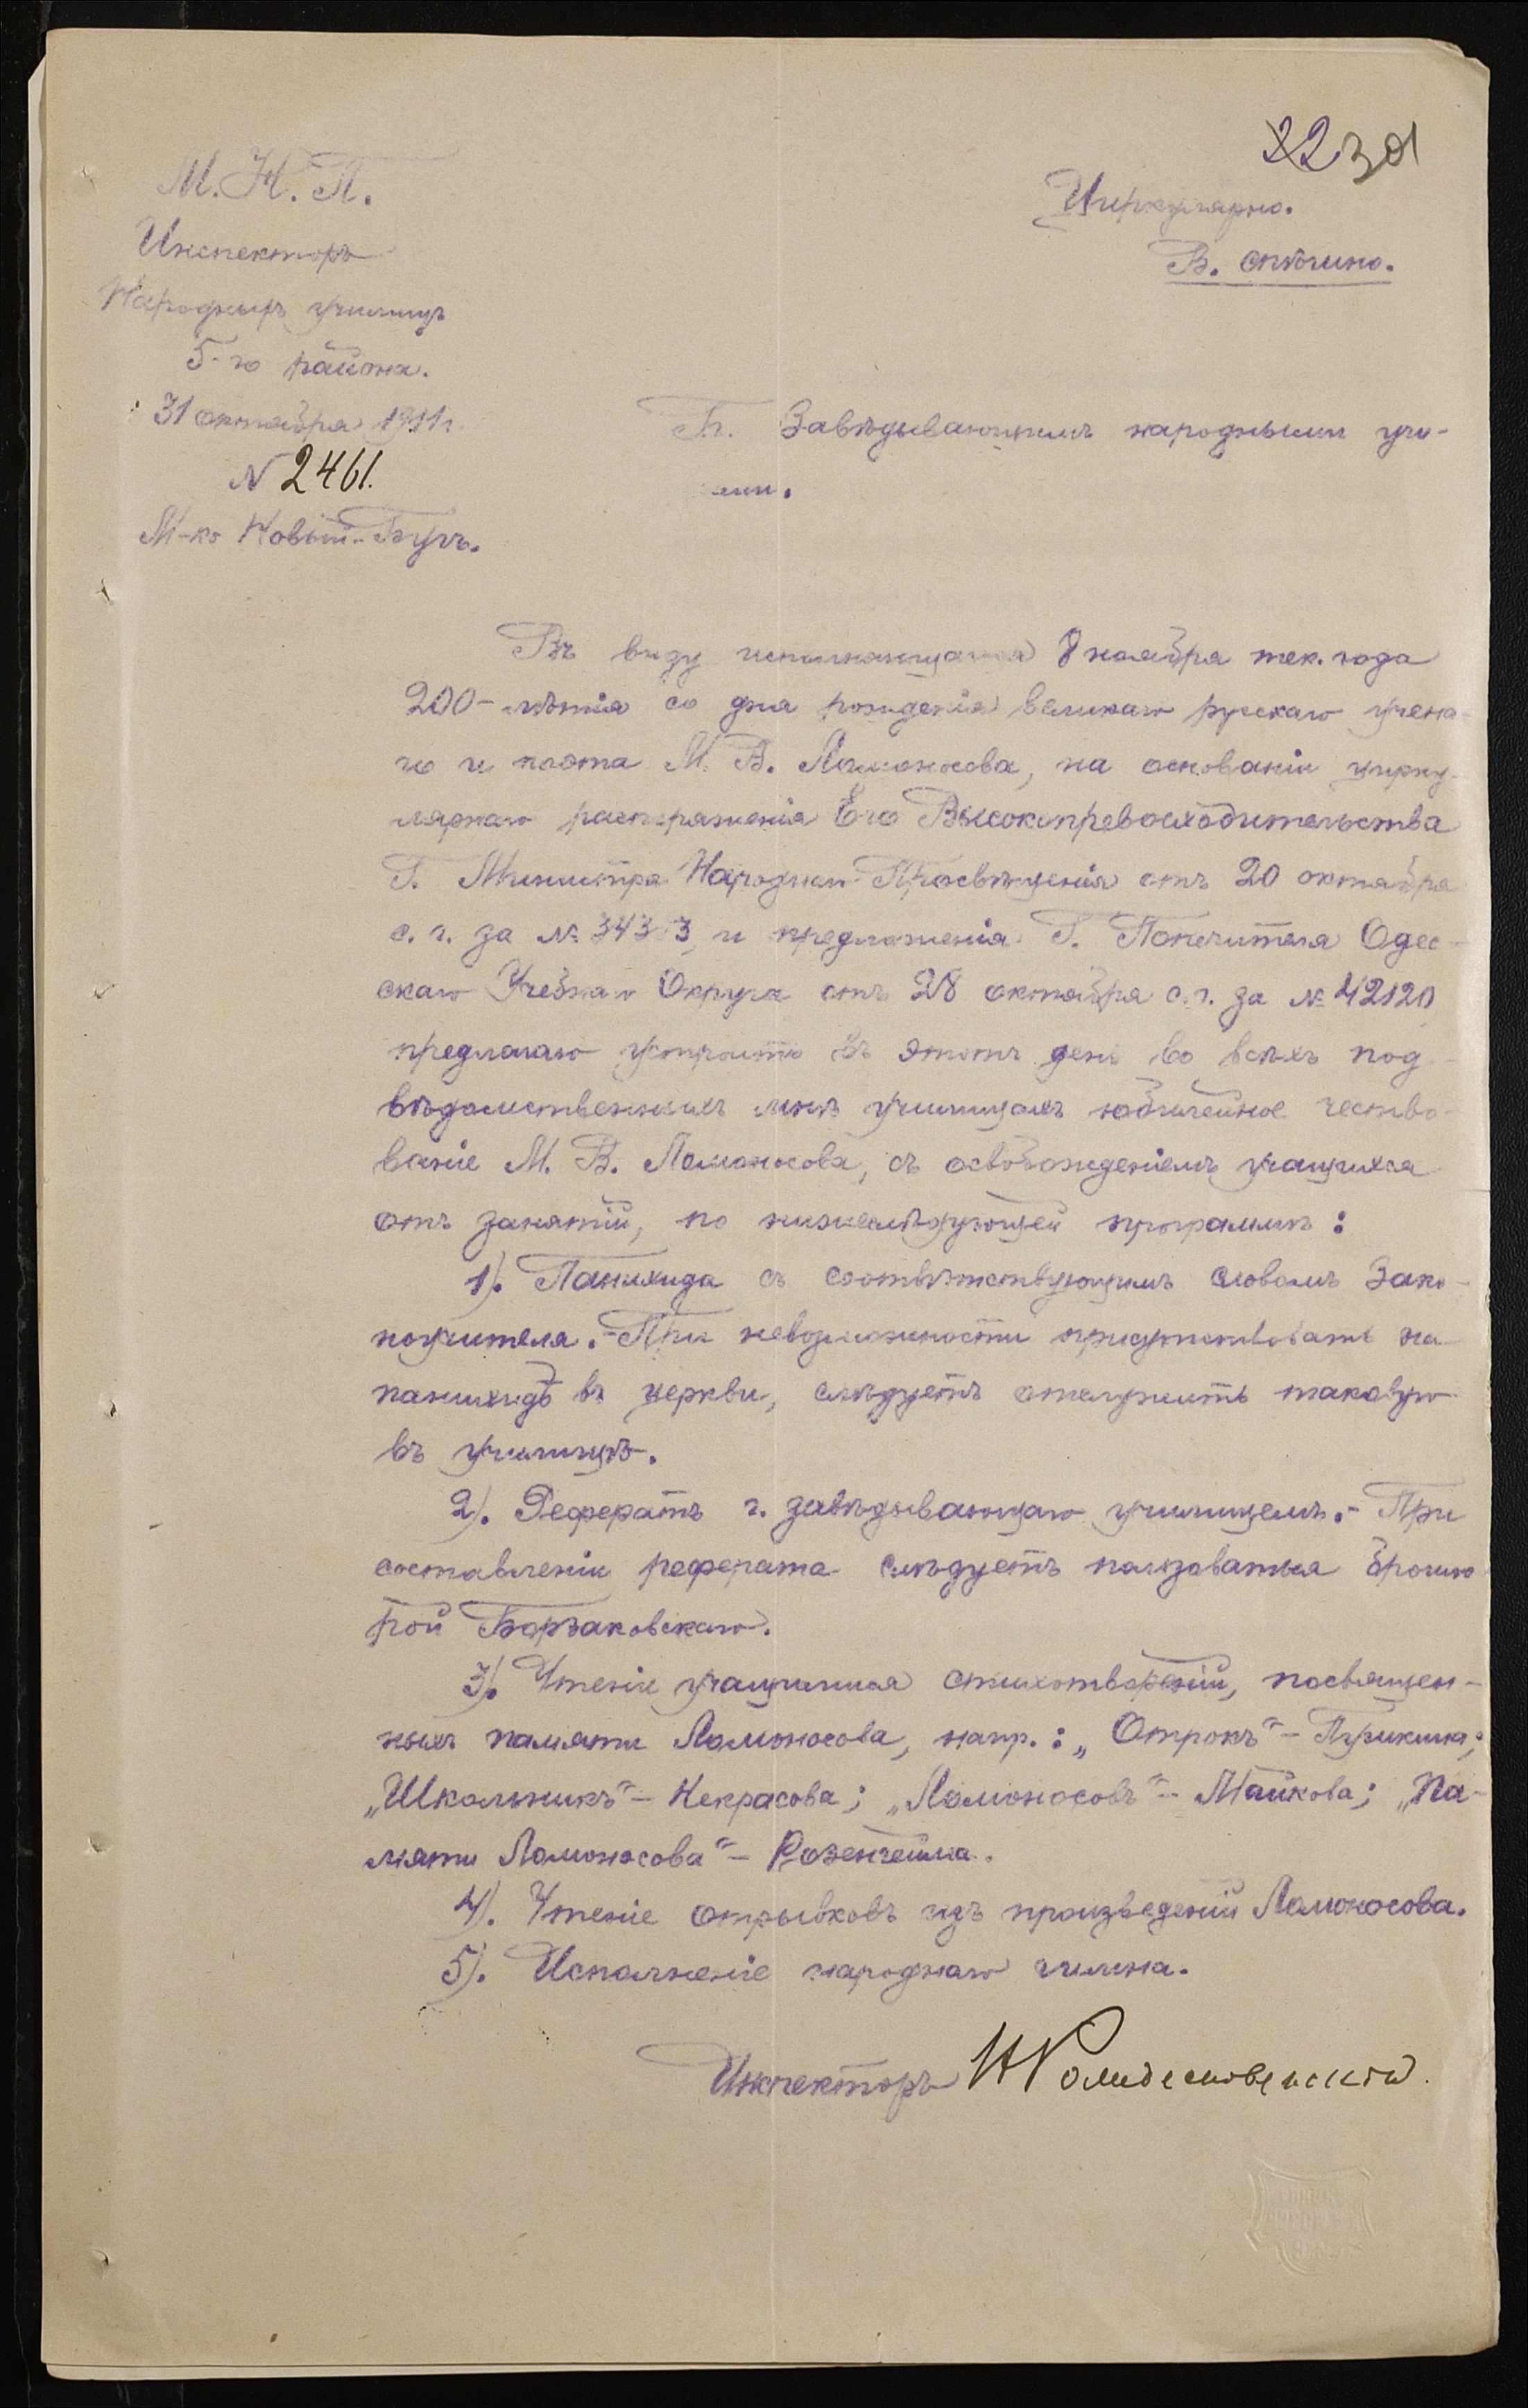 22 30
М. Н. П.
Инспекторъ
Народныхъ училищъ
5-го района.
31 октября 1911 г.
№ 2461.
М-ко Новый-Бугъ.
Циркулярно.
В. спѣшно.
Гг. Завѣдывающимъ народными учи-
ми.
Въ виду исполняющагося 8 ноября тек. года
200-лѣтія со дня рожденія великаго русскаго учена-
го и поэта М. В. Ломоносова, на основаніи цирку-
лярнаго распоряженія Его Высокопревосходительства
Г. Министра Народнаго Просвѣщенія отъ 20 октября
с. г. за № и предложенія Г. Попечителя Одес-
скаго Учебнаго Округа отъ 28 октября с. г. за № 42120
предлагаю устроить въ этотъ день во всѣхъ под-
вѣдомственныхъ мнѣ училищахъ юбилейное чество-
ваніе М. В. Ломоносова, съ освобожденіемъ учащихся
отъ занятій, по нижеслѣдующей программѣ:
1). Панихида съ соотвѣтствующимъ словомъ Зако-
ноучителя. - При невозможности присутствовать на
панихидѣ въ церкви, слѣдуетъ отслужить таковую
въ училищѣ.
2). Рефератъ г. завѣдывающаго училищемъ. - При
составленіи реферата слѣдуетъ пользоваться брошю-
рой Борзаковскаго.
3). Чтеніе учащимися стихотвореній, посвящен-
ныхъ памяти Ломоносова, напр.: „Отрокъ" - Пушкина;
„Школьникъ" - Некрасова; „Ломоносовъ" - Майкова; „Па-
мяти Ломоносова" - Розенгейма.
4). Чтеніе отрывковъ изъ произведеній Ломоносова.
5). Исполненіе народнаго гимна.
Инспекторъ